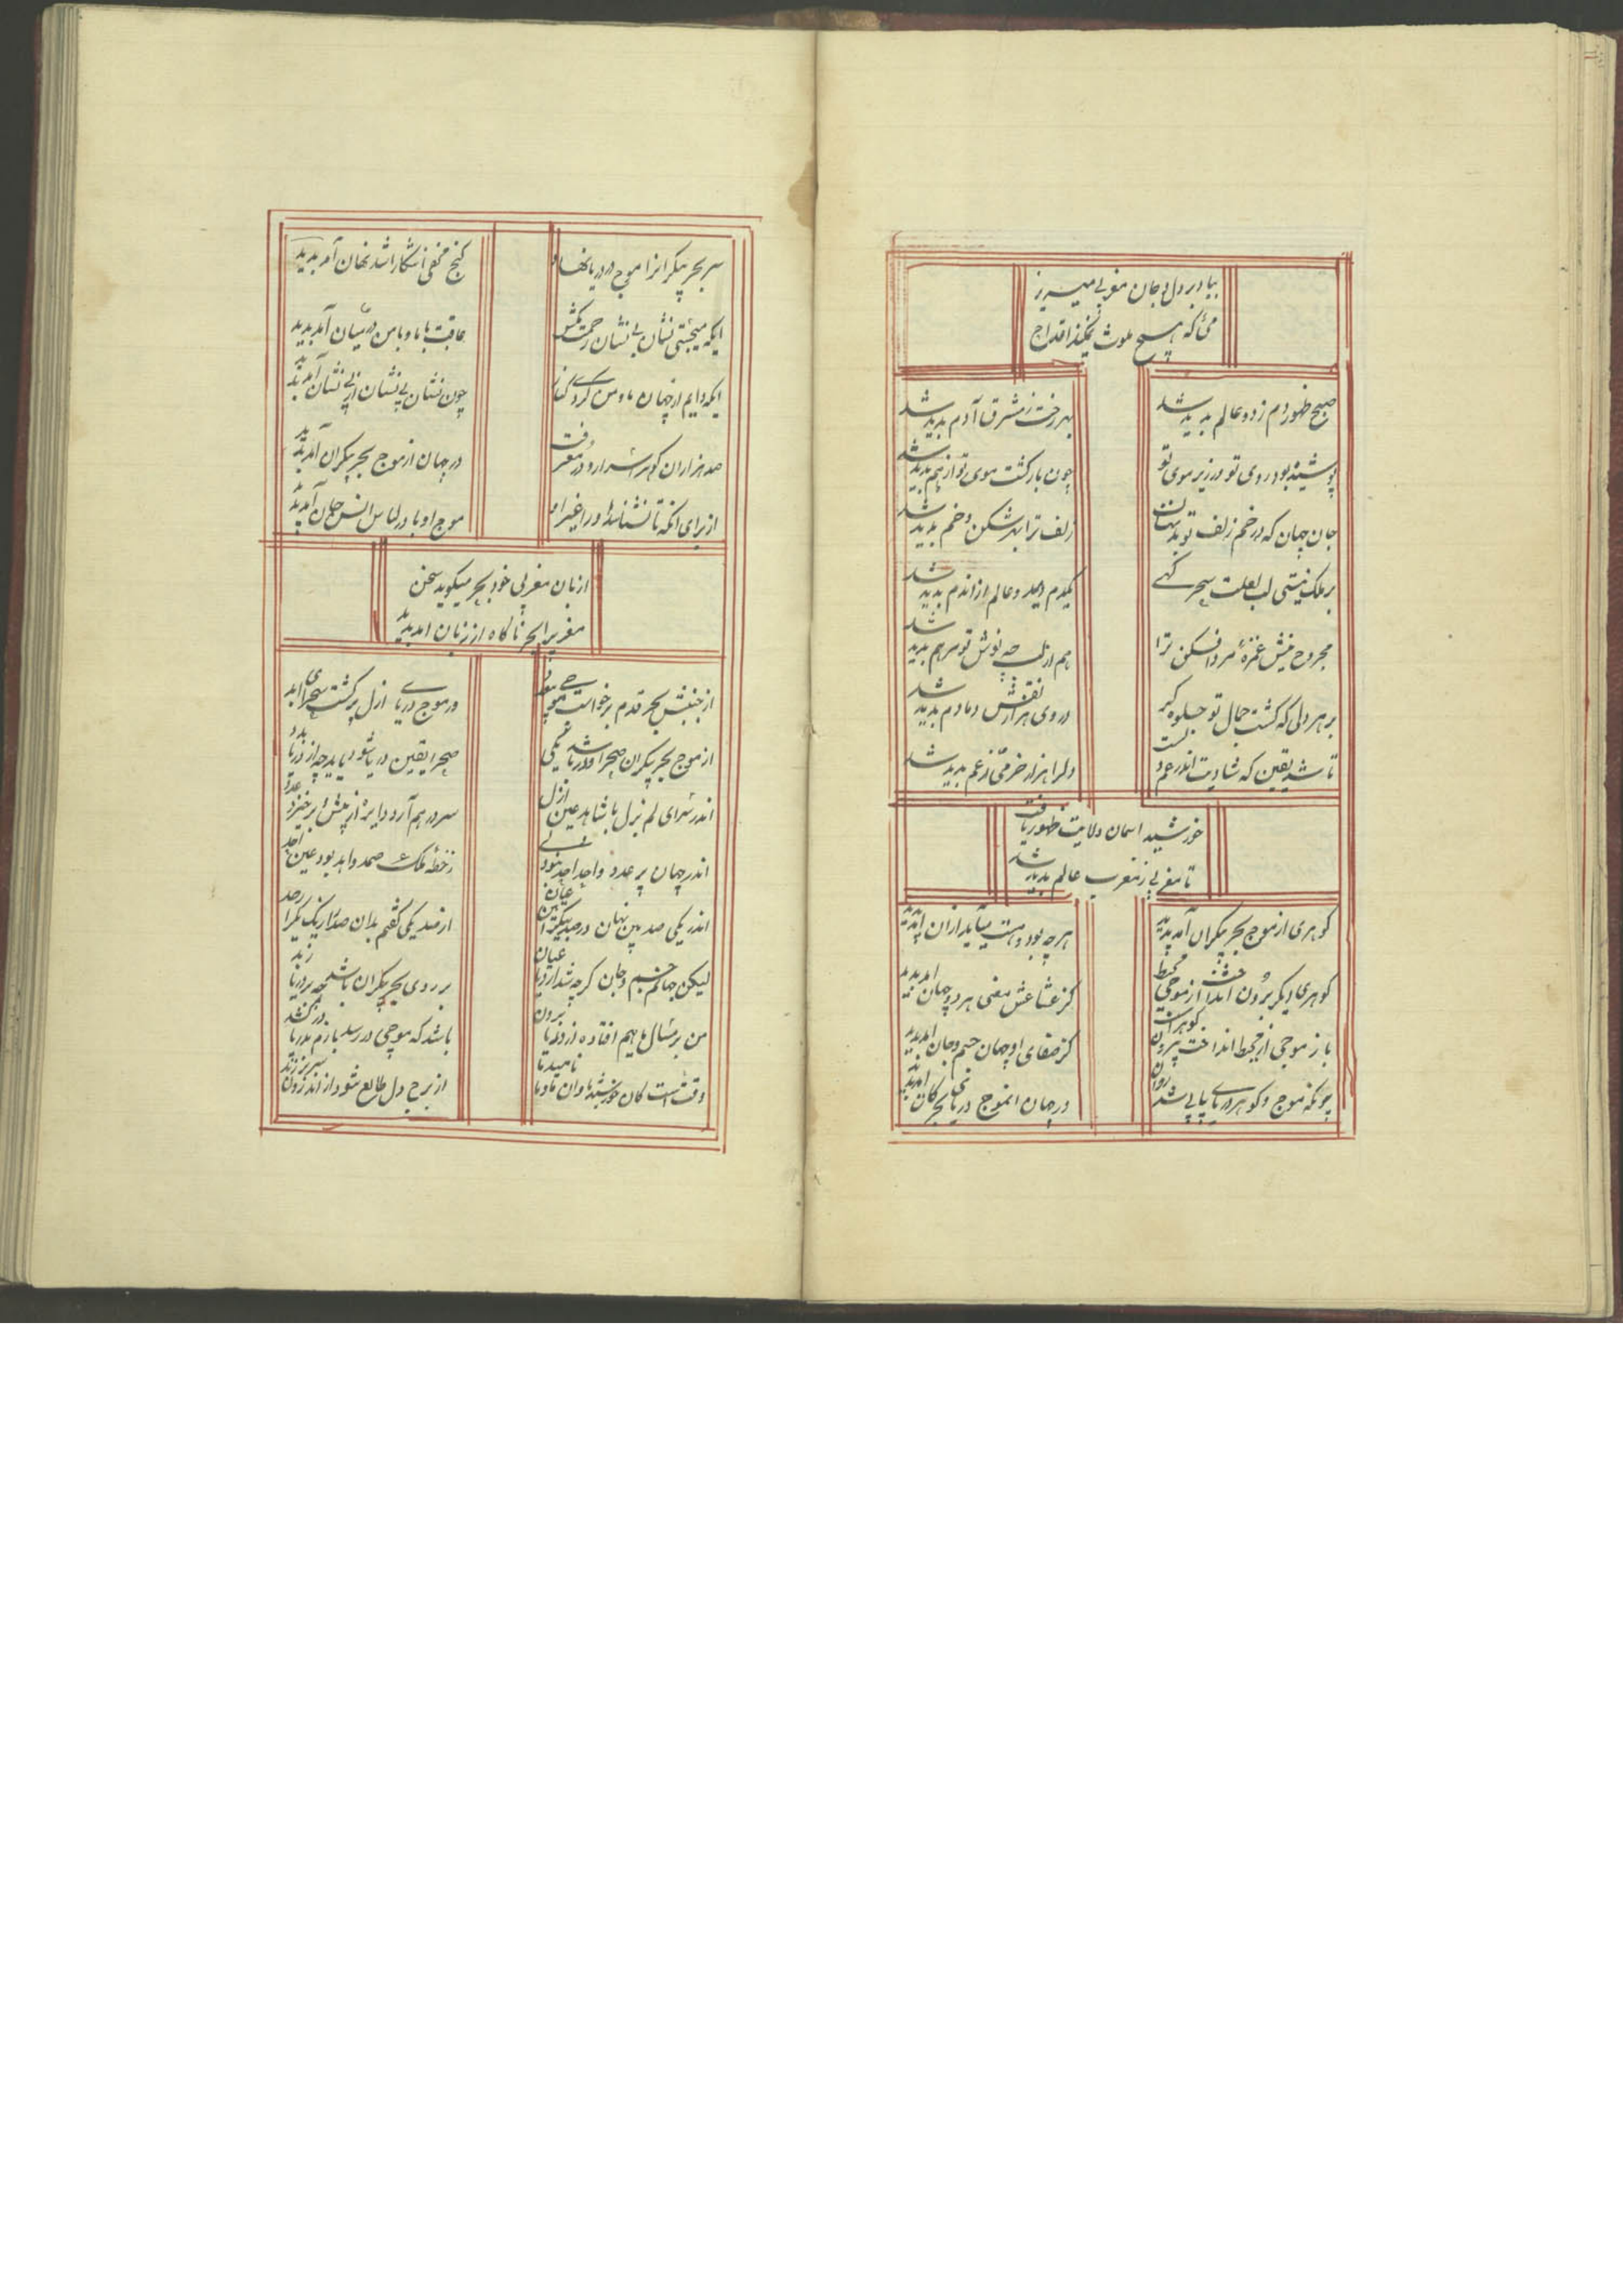 بیا و بر دل و جان مغربی میریز
می که هیچ ملوث نمیکند اقداح
صبح ظهور دم زد و عالم پدید شد
بهر رخت ز مشرق آدم پدید شد
پوشیده بود روی تو در زیر موی تو
چون باز گشت موی تو از هم پدید شد
جان جهان که در خم زلف تو بد نهان
زلف ترا بد شکن و خم پدید شد
بر ملک نیستی لب لعلت سحر گهی
یکدم دمید و عالم از آن دم پدید شد
مجروح نیش غمزه مرد افکن ترا
هم از لب چه نوش تو مرهم پدید شد
بر هر دلی که گشت جمال تو جلوه گر
در وی هزار نقش دمادم پدید شد
تا شد یقین که شادیت اندر غم دلست
دلرا هزار خرمی از غم پدید شد
خورشید اسمان ولایت ظهور یافت
تا مغربی ز مغرب عالم پدید شد
گوهری از موج بحر بیکران آمد پدید
هرچه بود و هست میآید از آن پدید
گوهری دیگر برون انداخت از موجی محیط
کز شعاعش معنی هر دو جهان امد پدید
باز موجی از محیط انداخت بیرون گوهران
کز صفای او جهان جسم و جان امد پدید
چونکه موج و گوهر دریا پیاپی شد روان
در جهان از موج دریا بحر کان امد پدید
سر بحر بیکرانرا موج در دریا نهاد
گنج مخفی آشکارا شد نهان آمد پدید
ایکه میجستی نشان بی نشان رحمت بکش
عاقبت با ما و با من در میان آمد پدید
ایکه دایم از جهان ما و من کردی کنار
چون نشان بی نشان از بی نشان آمد پدید
صد هزاران گوهر اسرار و در معرفت
در جهان از موج بحر بیکران آمد پدید
از برای انکه تا نشناسد او را غیر او
موج او با در لباس انس و جان آمد پدید
از بان مغربی خود بحر میگوید سخن
مغربیرا بحر ناگاه از زبان امد پدید
از جنبش بحر قدم برخواست موجی
در موج دریای ازل پر گشت صحرای ابد
از موج بحر بیکران صحرا و دریا شد یکی
صحرا یقین دریا شود
اندر سرای لم یزل با شاهد عین ازل
سر در هم آرد دایره از پیش برخیزد عدد
اندر جهان پر عدد واحد احد
ز خطه ملک صمد واحد بود عین احد
اندر یکی صد بین نهان در صد
از صد یکی گفتم بدان صد را ز یک
لیکن جهان جسم و جان گرچه شد از دریا عیان
بر روی بحر بیکران باشد چه بر دریا زبد
من بر مثال ماهیم افتاده از دریا برون
باشد که موجی در رسد بازم بدریا درکشد
وقت است کان خورشید
از برج دل طالع شود از اندرون سر برزند